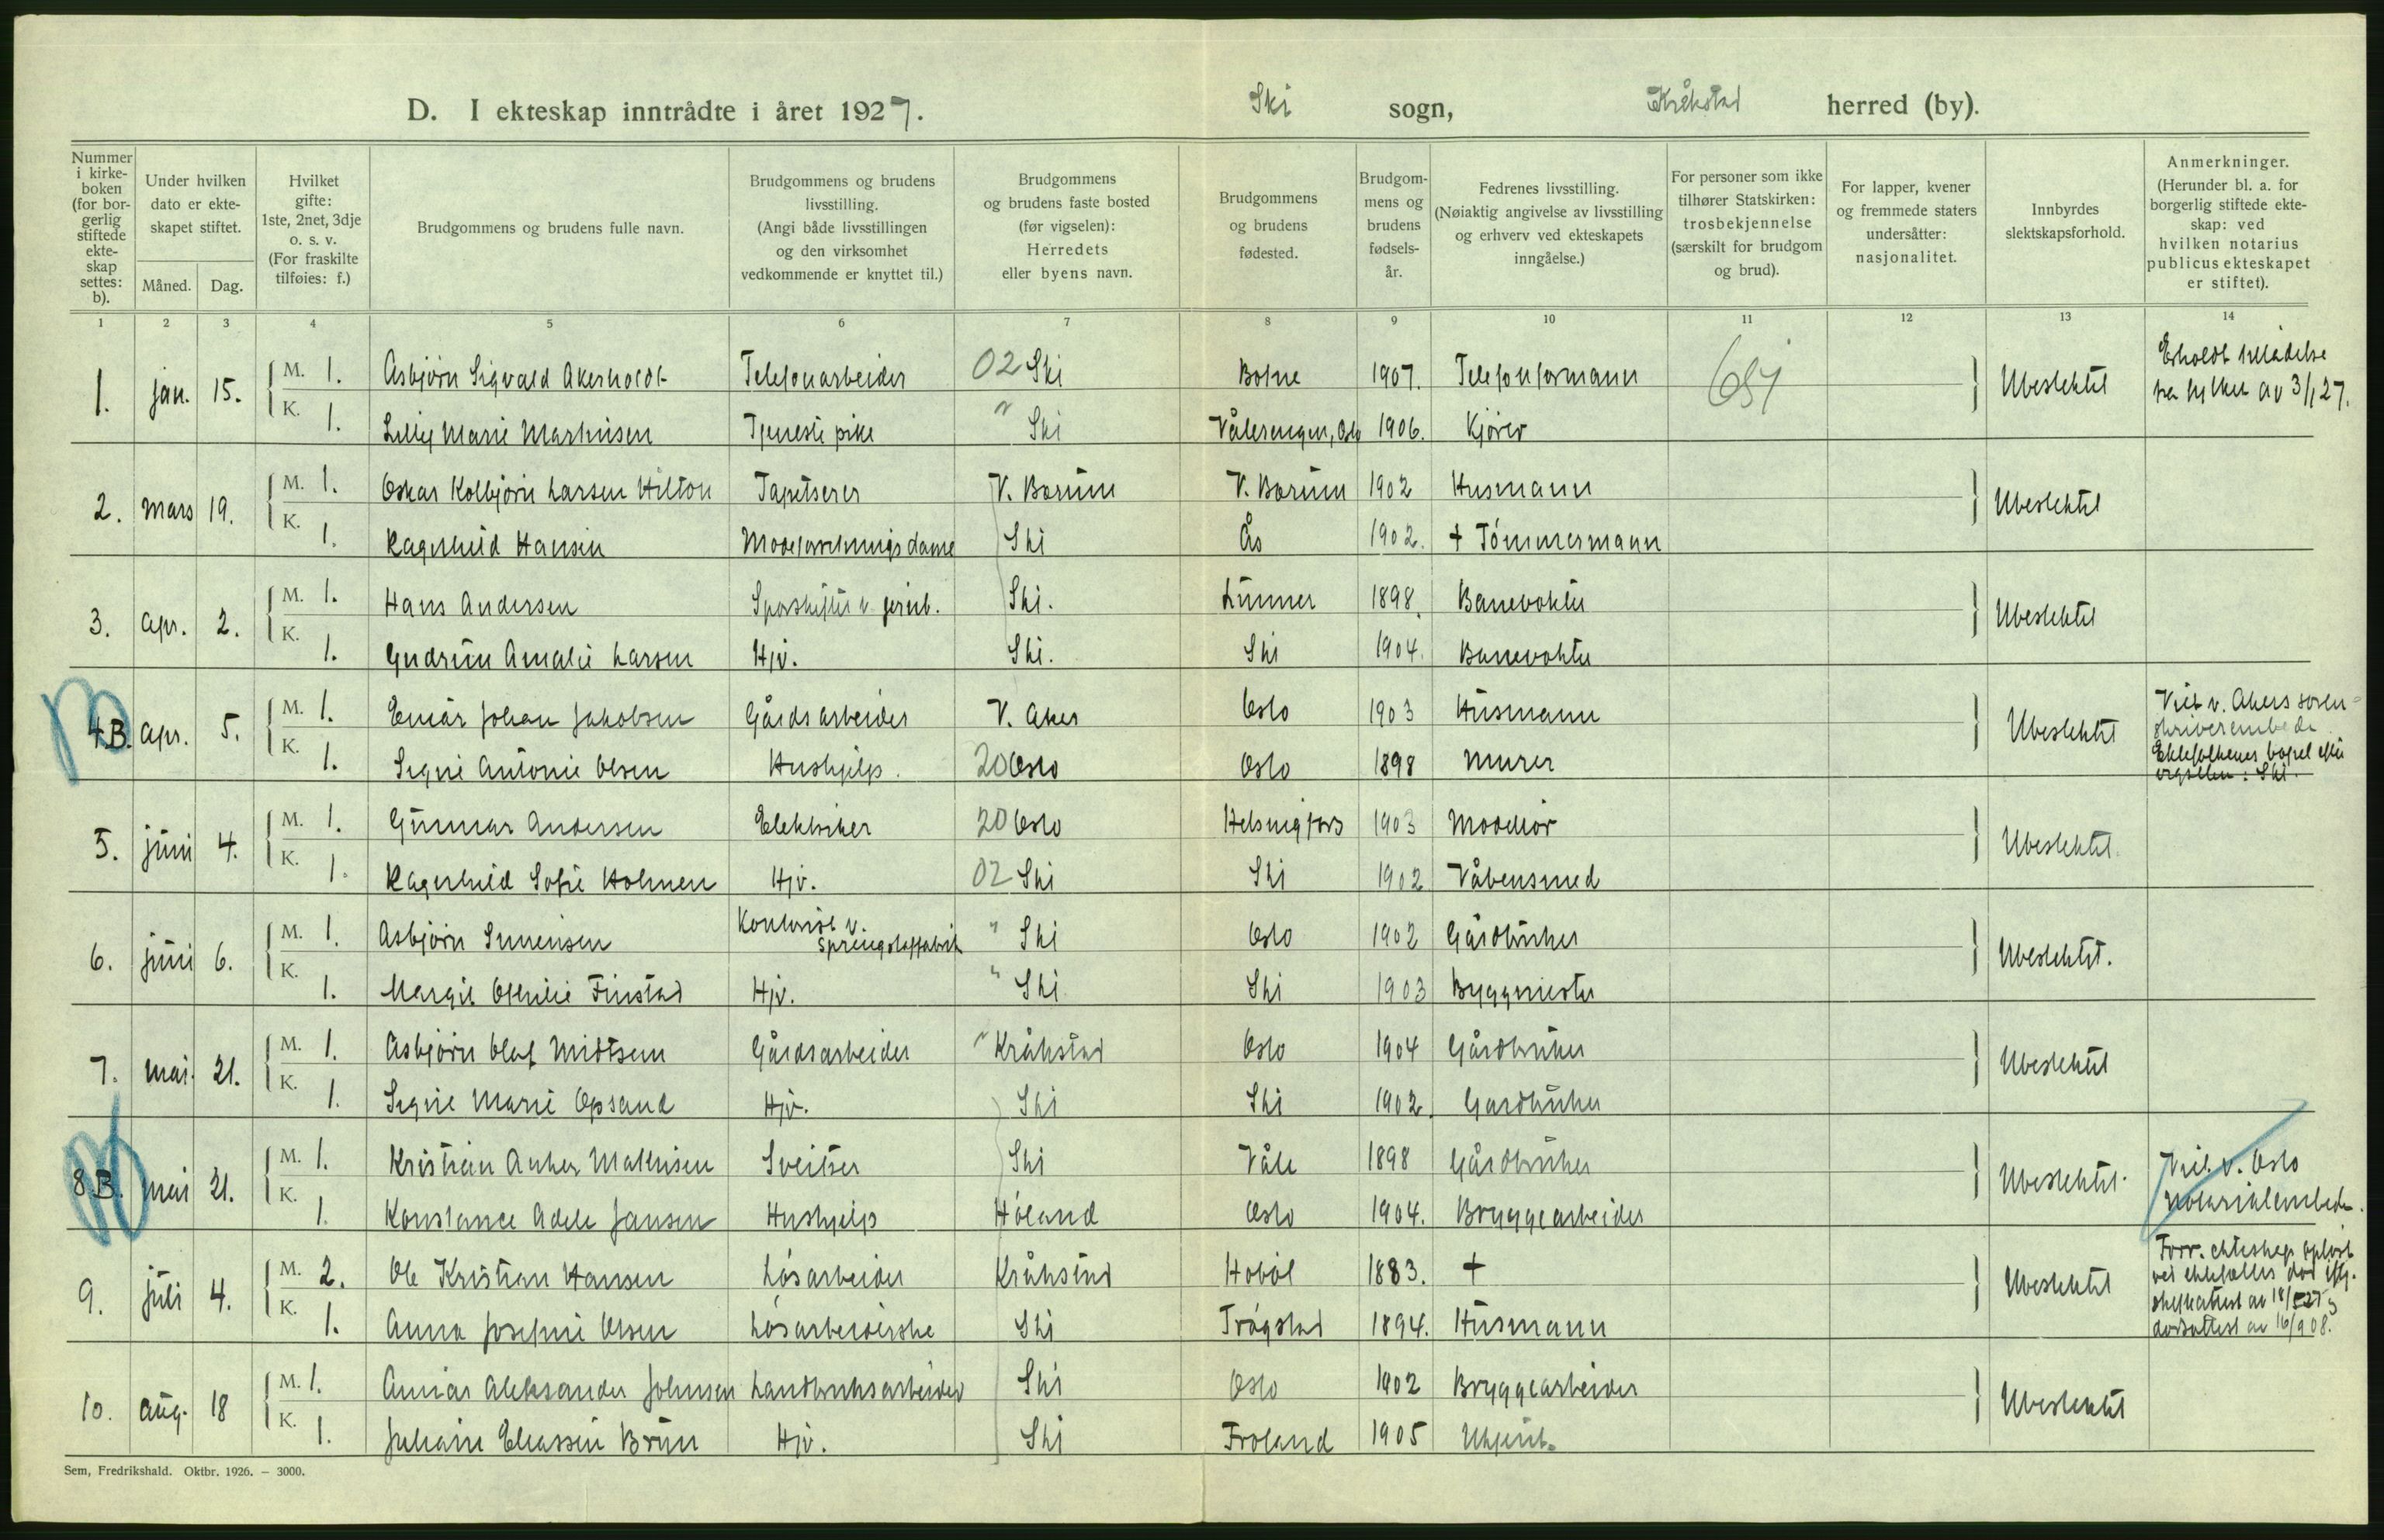 D. I ekteskap inntrådte i året 1927. Ski sogn, Kråkstad herred (by).
Nummer i kirkeboken (for borgerlig stiftede ekteskap settes: b).
Under hvilken dato er ekteskapet stiftet.
Måned. Dag.
Hvilket gifte: 1ste, 2net, 3dje o. s. v. (For fraskilte tilføies: f.)
Brudgommens og brudens fulle navn.
Brudgommens og brudens livsstilling. (Angi både livsstillingen og den virksomhet vedkommende er knyttet til.)
Brudgommens og brudens faste bosted (før vigselen): Herredets eller byens navn.
Brudgommens og brudens fødested.
Brudgommens og brudens fødselsår.
Fedrenes livsstilling. (Nøiaktig angivelse av livsstilling og erhverv ved ekteskapets inngåelse.)
For personer som ikke tilhører Statskirken: trosbekjennelse (særskilt for brudgom og brud).
For lapper, kvener og fremmede staters undersåtter: nasjonalitet.
Innbyrdes slektskapsforhold.
Anmerkninger. (Herunder bl. a. for borgerlig stiftede ekteskap: ved hvilken notarius publicus ekteskapet er stiftet).
1 2 3 4 5 6 7 8 9 10 11 12 13 14
1. jan. 15. M. 1. Asbjörn Sigvald Akerholdt Telefonarbeider 02 Ski Botne 1907. Telefonformann Ubeslektet
K. 1. Lilly Marie Martinsen Tjenestepike " Ski Vålerengen, Oslo 1906. Kjörer
Erholdt tilladelse
fra fylket av 3/1 27.
2. mars 19. M. 1. Oskar Kolbjörn Larsen Hilton Tapetserer V. Bærum V. Bærum 1902 Husmann Ubeslektet
K. 1. Ragnhild Hansen Modeforretningsdame Ski Ås 1902. + Tömmermann
3. apr. 2. M. 1. Hans Andersen Sporskifter v. jernb. Ski. Lunner 1898. Banevokter Ubeslektet
K. 1. Gudrun Amalie Larsen Hjv. Ski. Ski 1904. Banevokter
4.B. apr. 5. M. 1. Einar Johan Jakobsen Gårdsarbeider V. Aker Oslo 1903 Husmann Ubeslektet
K. 1. Signe Antonie Olsen Hushjelp. 20 Oslo Oslo 1898 Murer
Viet v. Akers soren-
skriverembede.
Ektefolkenes bopel efter
vigselen: Ski.
5. juni 4. M. 1. Gunnar Andersen Elektriker 20 Oslo Helsingfors 1903 Modellör Ubeslektet.
K. 1. Ragnhild Sofie Holmen Hjv. 02 Ski Ski 1902 Våbensmed
6. juni 6. M. 1. Asbjörn Simensen Kontorist v. sprengstoffabrik " Ski Oslo 1902 Gårdbruker Ubeslektet.
K. 1. Margit Othilie Finstad Hjv. " Ski Ski 1903 Byggmester
7. mai. 21. M. 1. Asbjörn Olaf Midtsem Gårdsarbeider " Kråkstad Oslo 1904 Gårdbruker Ubeslektet
K. 1. Signe Marie Opsand Hjv. Ski Ski 1902. Gårdbruker
8.B. mai 21. M. 1. Kristian Anker Mathisen Sveitser Ski Våle 1898 Gårdbruker Ubeslektet.
K. 1. Konstance Adele Jansen Hushjelp Höland Oslo 1904. Bryggearbeider
Viet v. Oslo
Notarialembede.
9. juli 4. M. 2. Ole Kristian Hansen Lösarbeider Kråkstad Hobøl 1883. + Ubeslektet
K. 1. Anna Josefine Olsen Lösarbeiderske Ski Trögstad 1894. Husmann
Forr. ekteskap oplöst
ved ektefelles död iflg.
skifteattest av 18/ 27 og
dødsattest av 16/9 08.
10. aug. 18 M. 1. Annar Aleksander Johnsen Landbruksarbeider Ski Oslo 1902 Bryggearbeider Ubeslektet
K. 1. Juliane Eliassen Bruun Hjv. Ski Froland 1905 Ukjent.
Sem, Fredrikshald. Oktbr. 1926. – 3000.